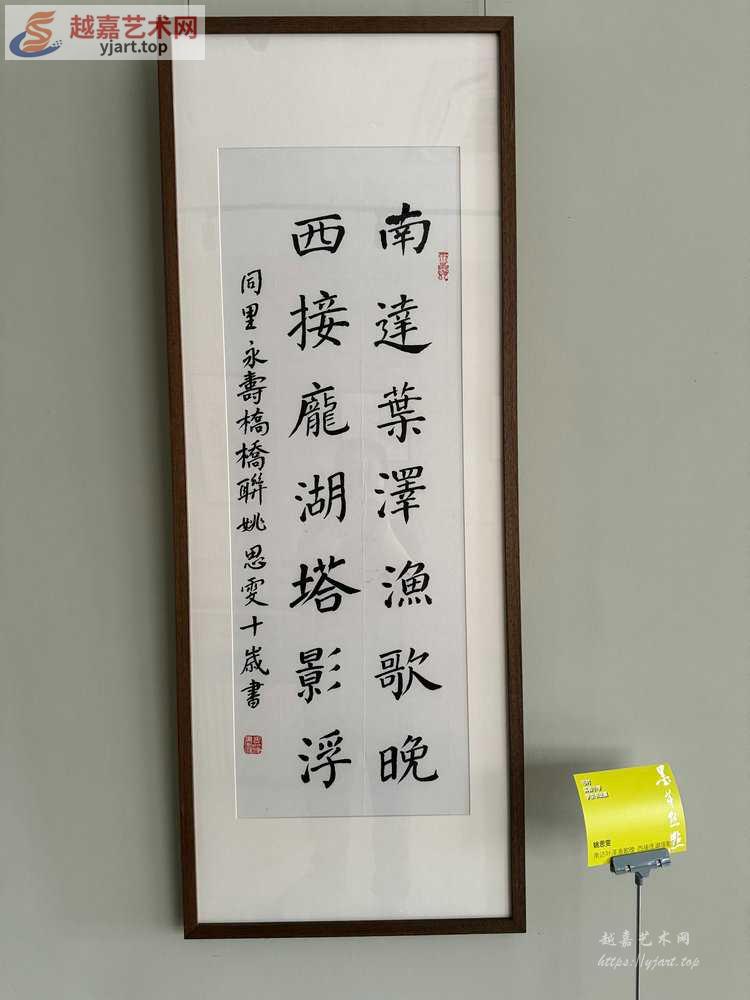 越嘉艺术网
yjart.top
南達葉澤漁歌晚
西接龐湖塔影浮
同里永壽橋橋聯姚思雯十歲書
姚思雯
越嘉艺术网
https://yjart.top